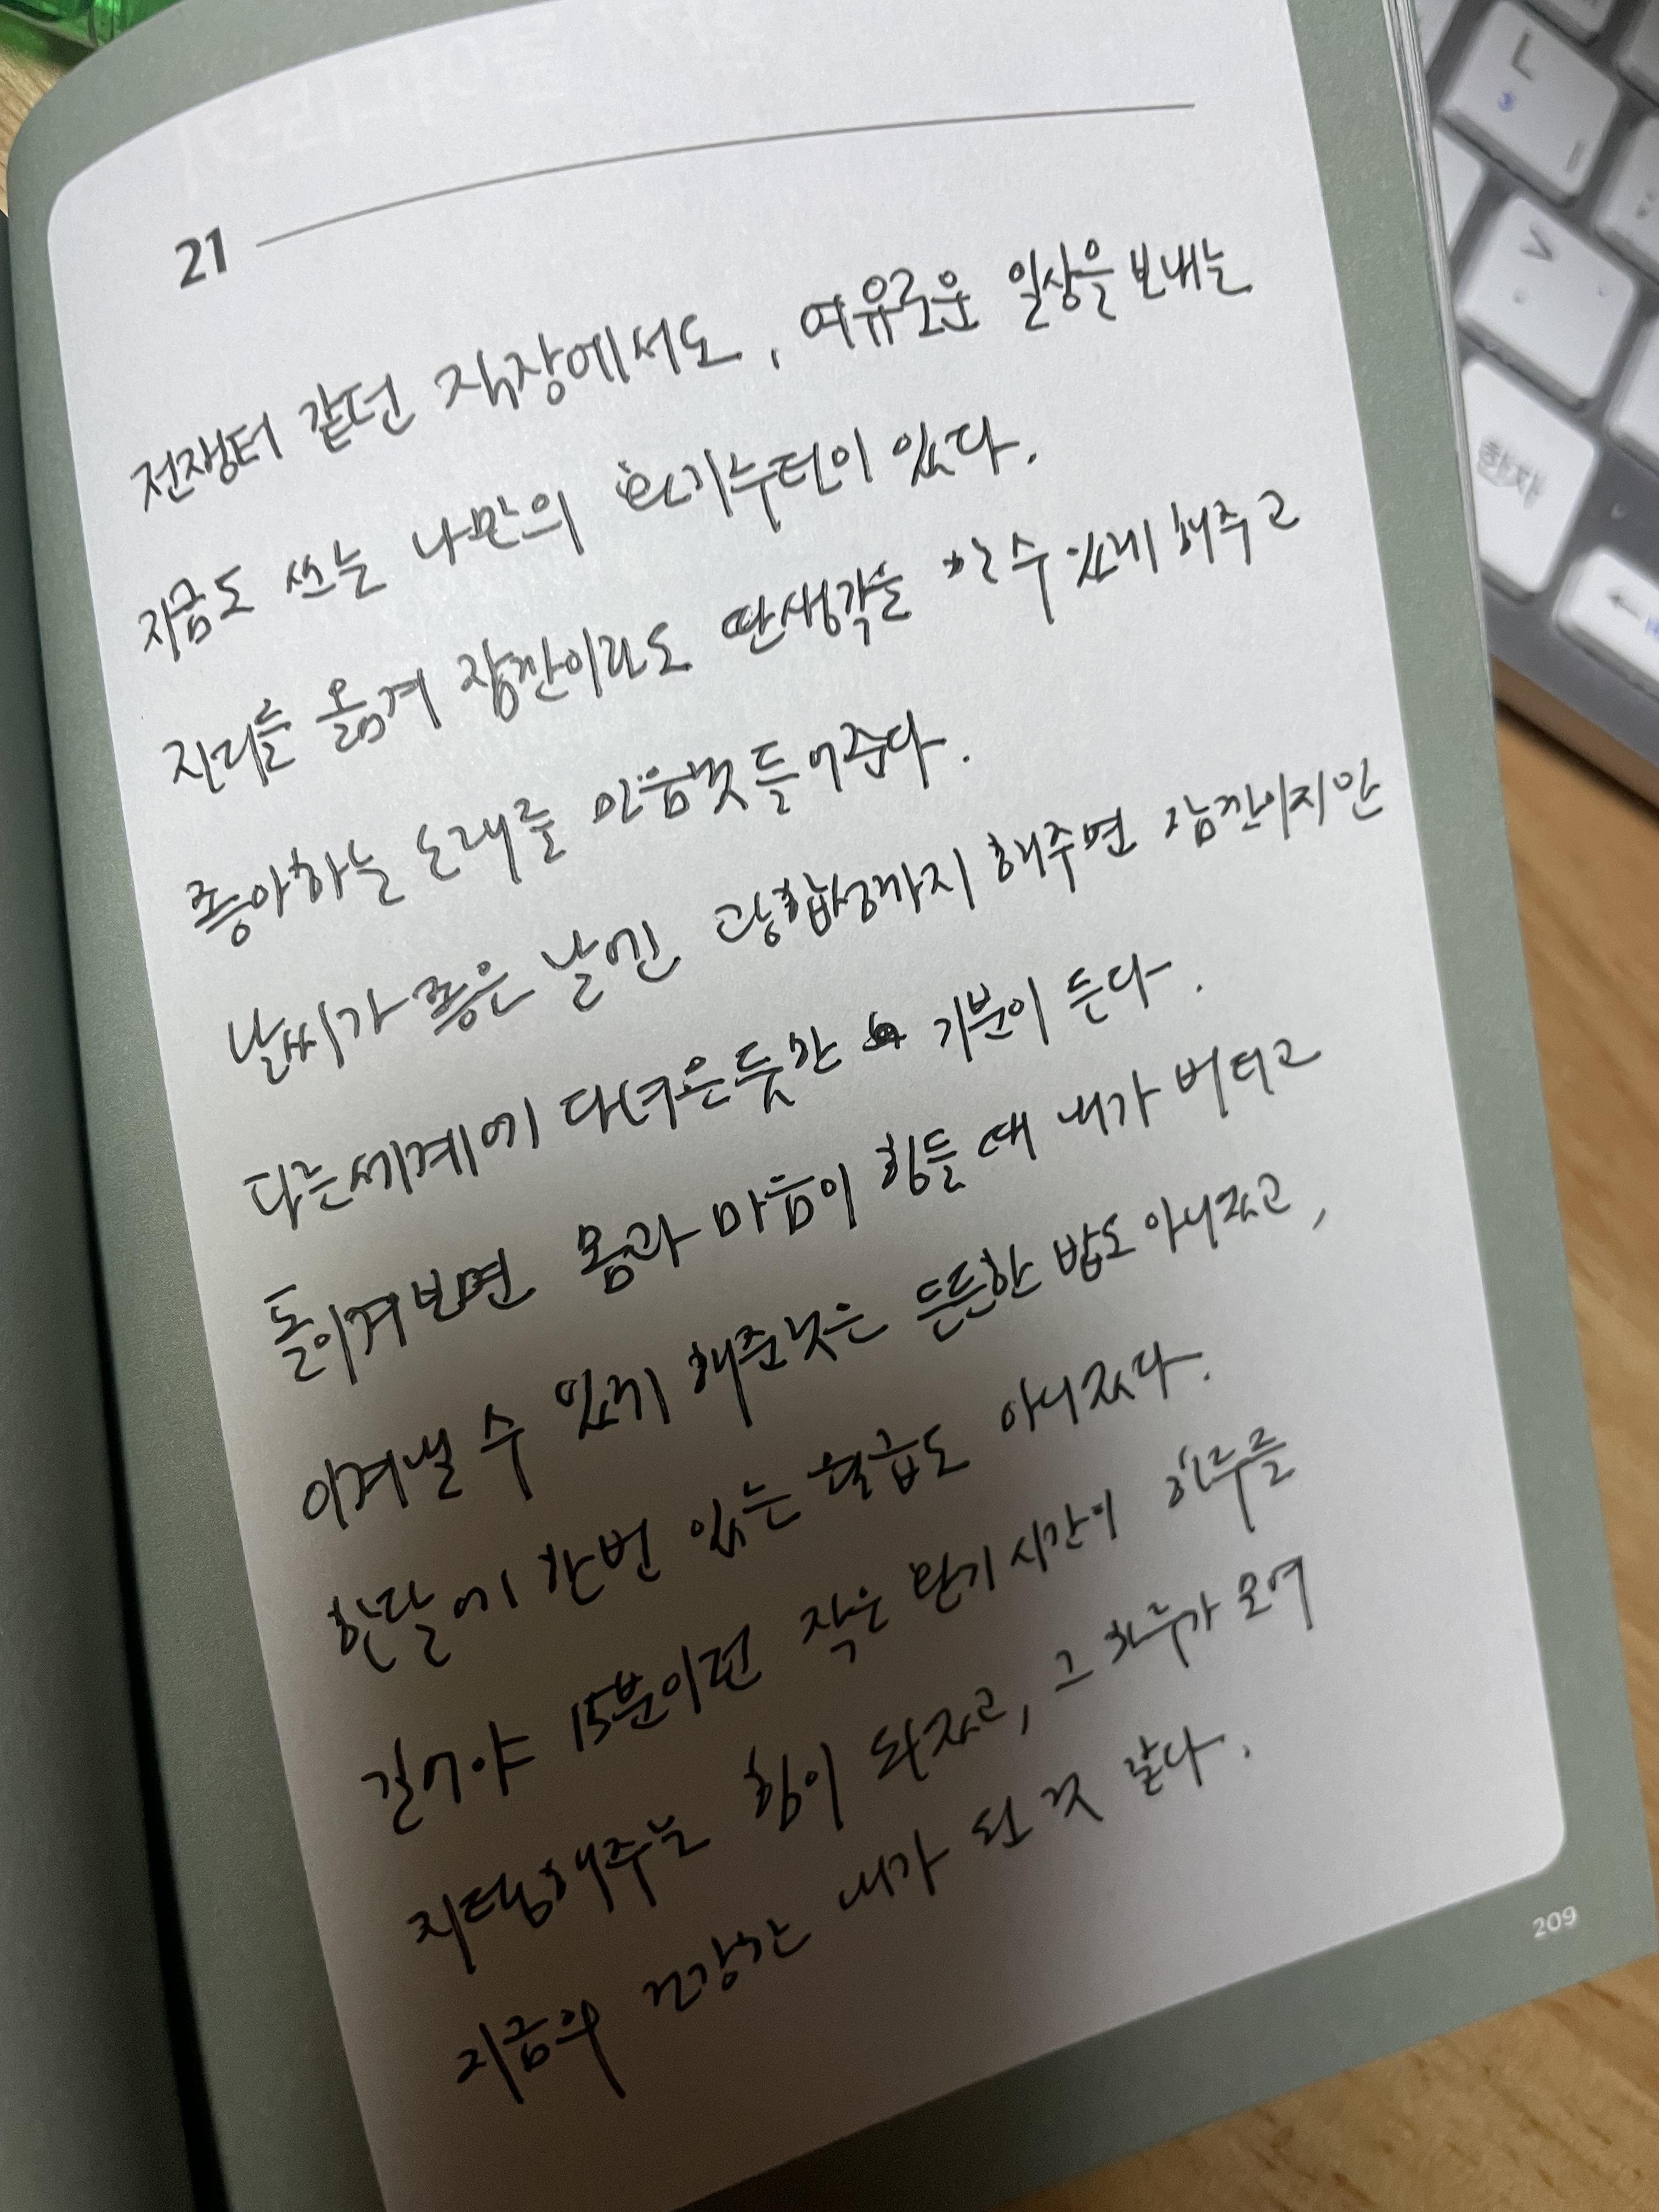 21
전쟁터 같던 직장에서도, 여유로운 일상을 보내는
지금도 쓰는 나만의 환기루틴이 있다.
자리를 옮겨 잠깐이라도 딴생각을 할 수 있게 해주고
좋아하는 노래를 마음껏 들어준다.
날씨가 좋은 날엔 광합성까지 해주면 잠깐이지만
다른세계에 다녀온듯한 기분이 든다.
돌이켜보면 몸과 마음이 힘들 때 내가 버티고
이겨낼 수 있게 해준것은 든든한 밥도 아니였고,
한달에 한번 있는 월급도 아니였다.
길어야 15분이던 작은 환기 시간이 하루를
지탱해주는 힘이 되었고, 그 하루가 모여
지금의 건강한 내가 된 것 같다.
209
ㄴ
한자